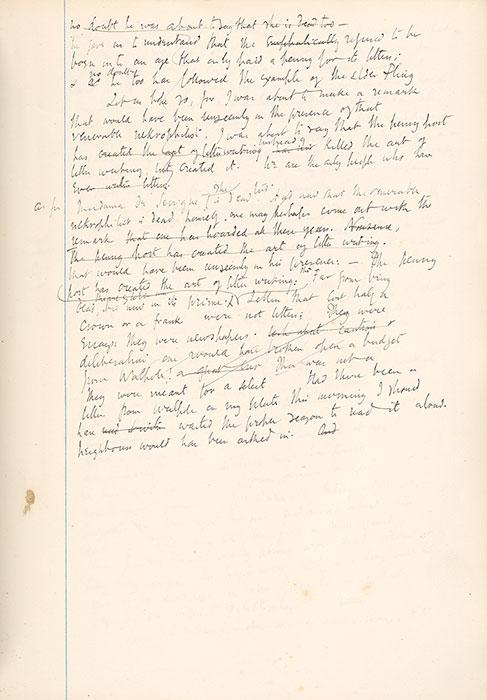 no doubt he was about to say that she is dead too —
he gave us to understand that she emphatically refused to be
born into an age that only paid a penny for its letters;
& no doubt he too has followed the example of the Elder Pliny
Let us hope so, for I was about to make a remark
that would have been unseemly in the presence of that
venerable nekrophilist. I was about to say that the penny post
has created the art of letter writing instead killed the art of
letter writing, but created it. We are the only people who have
ever letters.
Madame de Sevigne is dead too. the now that the venerable
nekrophilist is dead namely, one may perhaps come out with the
remark that one has hoarded all these years. Nonsense,
the penny post has created the art of letter writing.
that would have been unseemly in his presence: — The penny
post has created the art of letter writing: Far from being
dead in its prime. Letters that cost half a
crown or a frank were not letters; They were
Essays: they were newspapers.
deliberation, one would have broken open a budget
from Walpole! That was not a
They were meant for a select Had there been a
letter from Walpole on my plate this morning I should
have waited the proper season to read it aloud.
neighbours would have been asked in. And